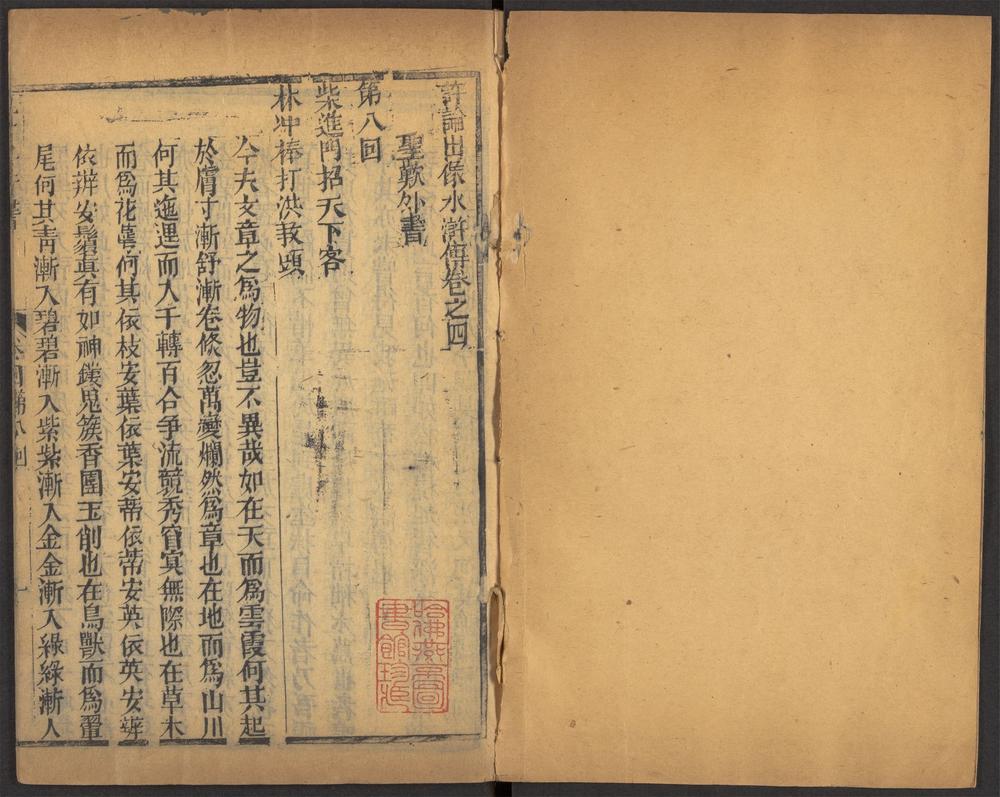 評論出像水滸傳卷之四
聖歎外書
第八回
柴進門招天下客
林冲棒打洪教頭
今夫文章之爲物也豈不異哉如在天而爲雲霞何其起
於膚寸漸舒漸卷倏忽萬變爛然爲章也在地而爲山川
何其迤邐而入千轉百合爭流競秀窅冥無際也在草木
而爲花萼何其依枝安葉依葉安蒂依蒂安英依英安瓣
依瓣安鬚真有如神鏤鬼簇香團玉削也在鳥獸而爲翬
尾何其青漸入碧碧漸入紫紫漸入金金漸入綠綠漸入
卷四第八回
哈佛燕京圖
書館珍藏